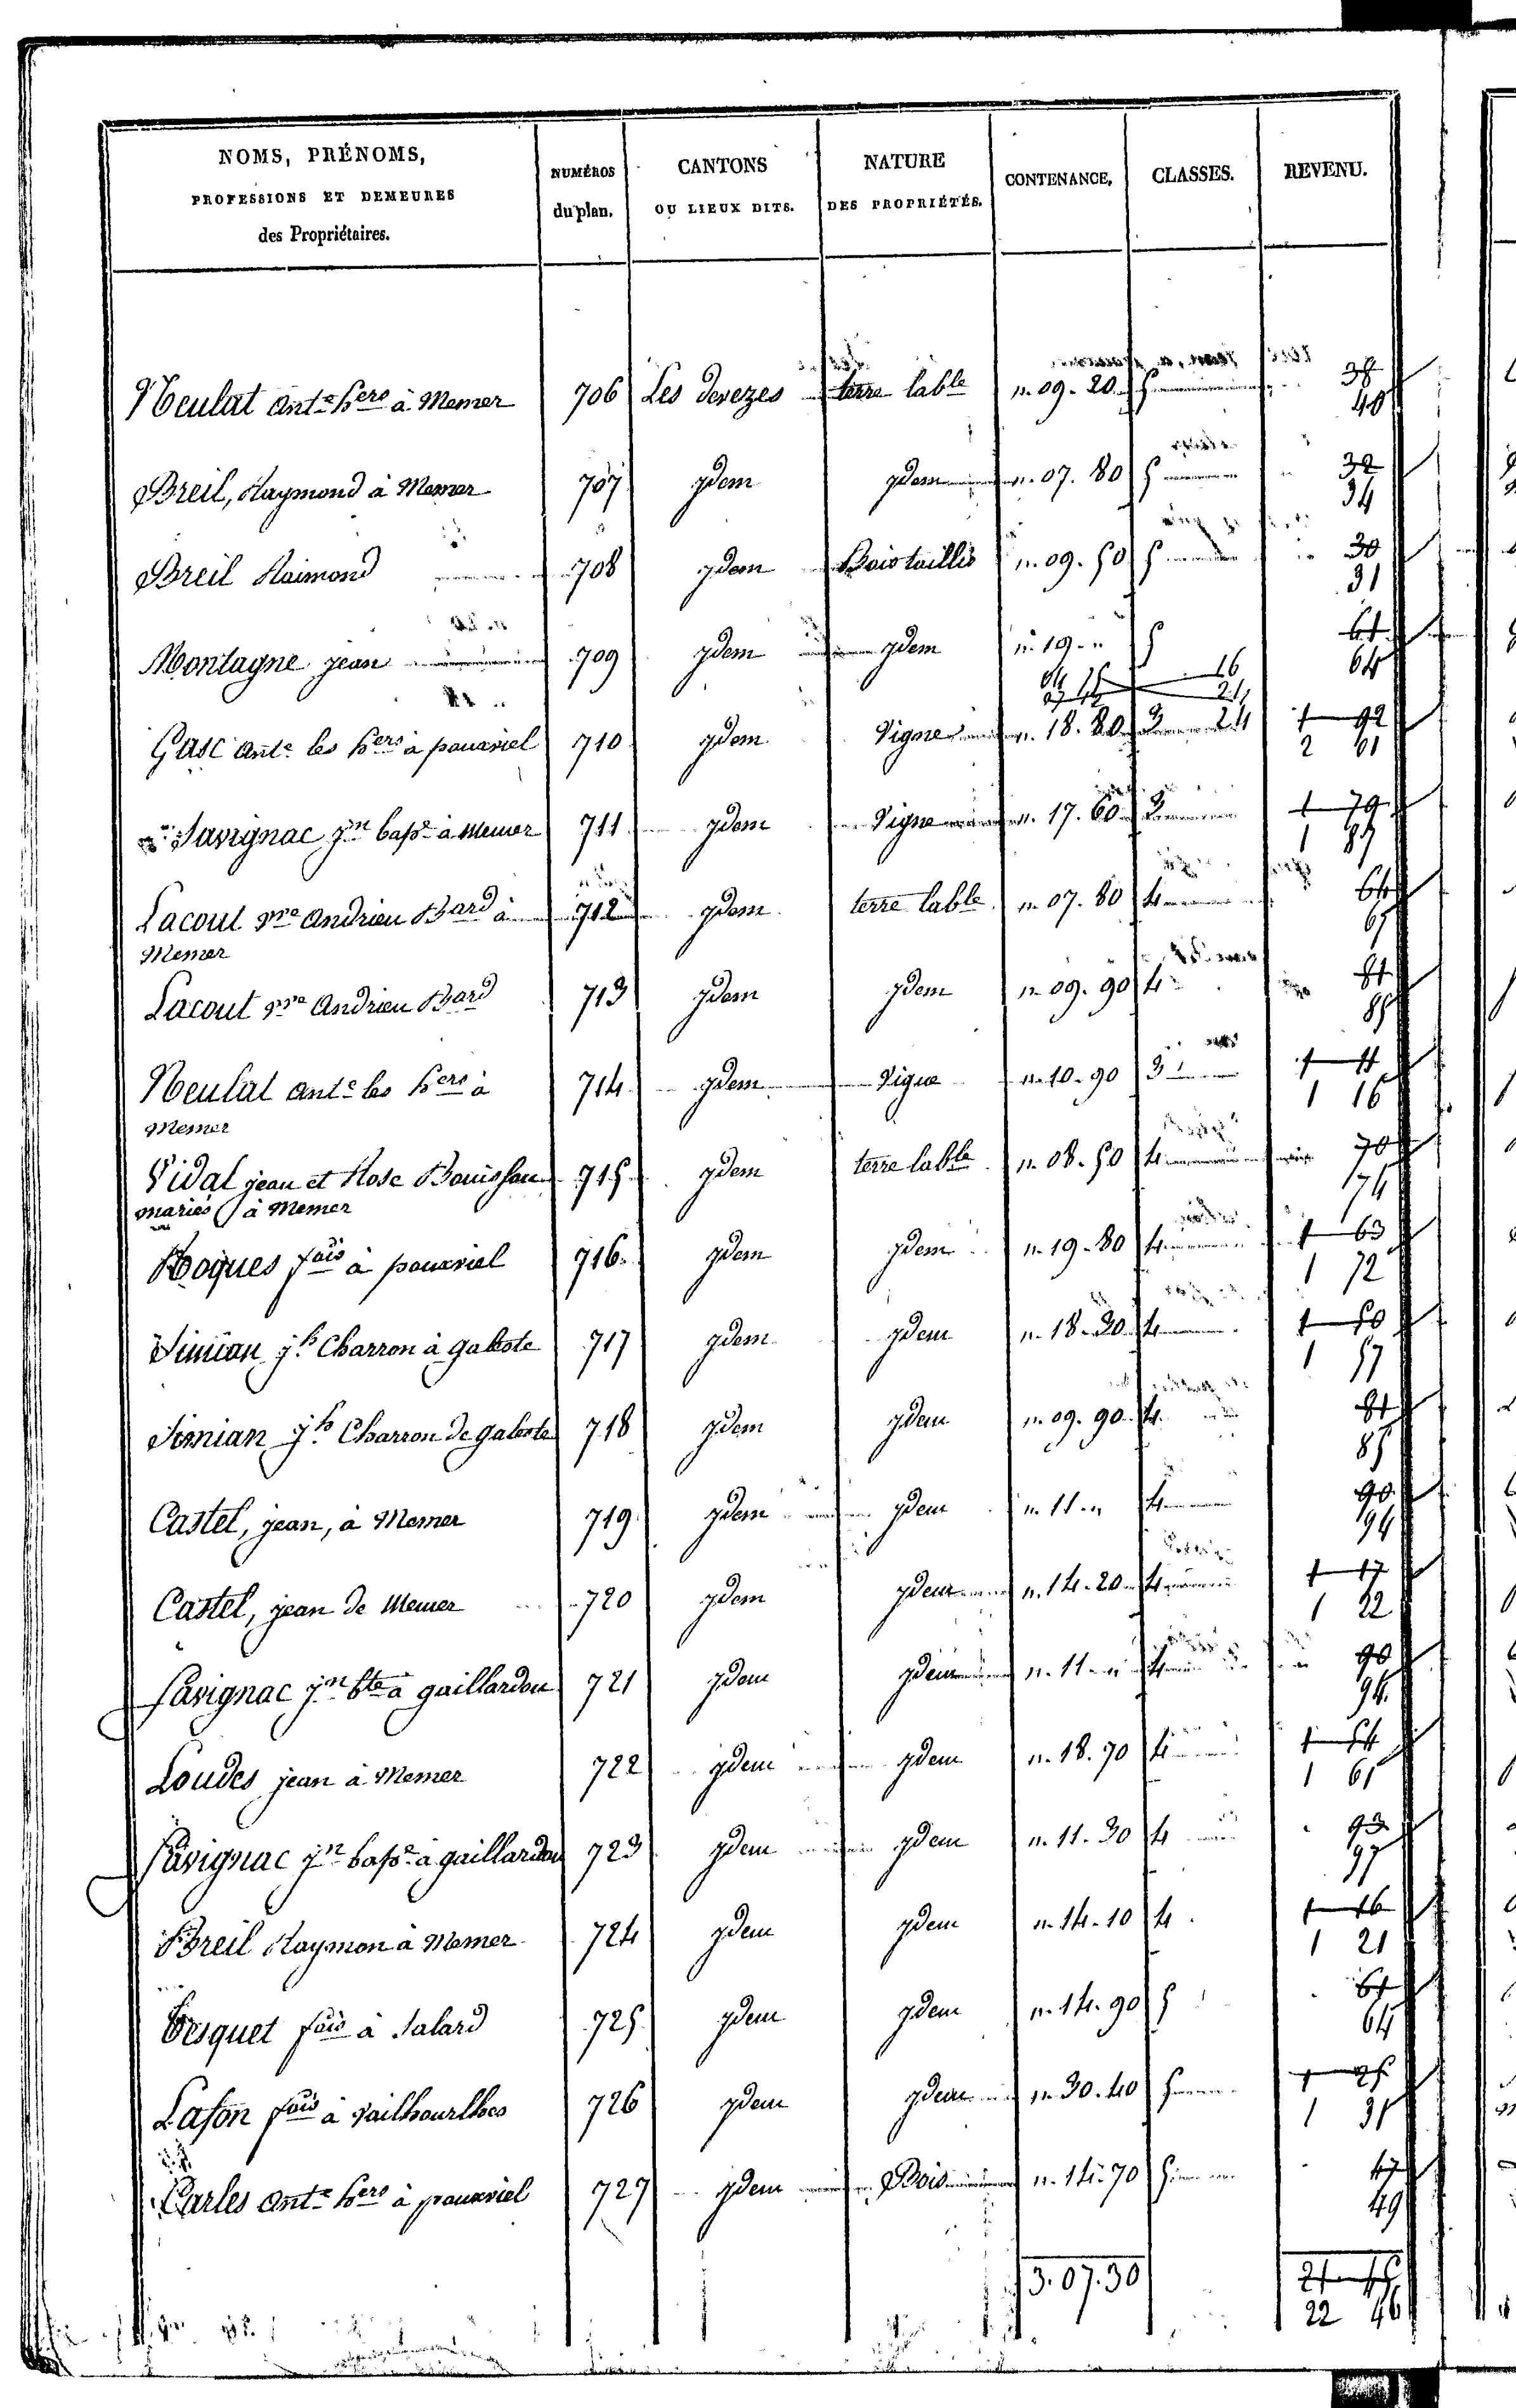 NOMS, PRÉNOMS, PROFESSIONS ET DEMEURES des Propriétaires. | NUMÉROS du plan. | CANTONS OU LIEUX DITS. | NATURE DES PROPRIÉTÉS. | CONTENANCE, | CLASSES. | REVENU.
Neulat ante hers à Memer 706 Les devezes terre lable „. 09. 20 5 38
40
Breil, Raymond à Memer 707 ydem ydem „. 07. 80 5 32
34
Breil Raimond 708 ydem Bois taillis „. 09. 50 5 30
31
Montagne jean 709 ydem ydem „. 19. „ 5 61
64
16
21
Gasc ante les hers à pouxviel 710 ydem Vigne „. 18. 80 2 24 1 92
2 61
Savignac jn bapte à Memer 711 ydem Vigne „. 17. 60 1 79
1 87
Lacout vve Andrieu Bard à 712 ydem terre lable „. 07. 80 4 64
Memer 67
Lacout vve Andrieu Bard 713 ydem ydem „. 09. 90 4 81
85
Neulat ante les hers à 714 ydem Vigne „. 10. 90 3 1 11
Memer 1 16
Vidal jean et Rose Bouisson 715 ydem terre lable „. 08. 50 4 70
mariés à Memer 74
Roques fois à pouxviel 716 ydem ydem „. 19. 80 4 1 63
1 72
Simian jh Charron à galeote 717 ydem ydem „. 18. 30 4 1 50
1 57
Simian jh Charron de galeote 718 ydem ydem „. 09. 90 4 81
85
Castel, jean, à Memer 719 ydem ydem „. 11. „ 4 90
94
Castel, jean de Memer 720 ydem ydem „. 14. 20 4 1 17
1 22
Savignac jn bte à gaillardou 721 ydem ydem „. 11. „ 4 90
94
Loudes jean à Memer 722 ydem ydem „. 18. 70 4 1 54
1 61
Savignac jn bapte à gaillardou 723 ydem ydem „. 11. 30 4 93
97
Breil Raymon à Memer 724 ydem ydem „. 14. 10 4 1 16
1 21
Tesquet fois à Salard 725 ydem ydem „. 14. 90 5 61
64
Lafon fois à vailhourlhes 726 ydem ydem „. 30. 40 5 1 25
1 31
Carles ante hers à pouxviel 727 ydem Bois „. 14. 70 5 47
49
3. 07. 30
22 46